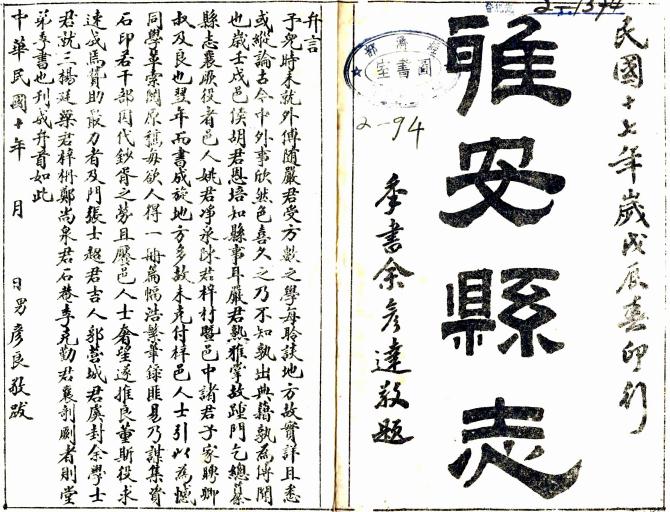 民國十七年歲戊辰孟春印行
雅安縣志
季書余彥達敬題
圖書室
2-1394
2-94
弁言
予兒時未就外傅隨嚴君受方數之學每聆談地方故實詳且悉
或縱論古今中外事欣然色喜久之乃不知孰出典籍孰為傳聞
也歲壬戌邑侯胡君恩培知縣事耳嚴君熟雅掌故踵門乞總纂
縣志襄厥役者邑人姚君 陳君梓材暨邑中諸君子家聘卿
叔及良也翌年而書成旋地方多故未克付梓邑人士引以為憾
同學輩索閱原稿每欲人得一冊篇幅浩繁筆錄匪易乃謀集資
石印若干部用代鈔胥之勞且饜邑人士奢望遂推良董斯役求
速成焉贊助最力者及門張士超君吉人郭 君虞封余學士
君就三楊 君梓 鄭尚泉君石 李克勤君襄剞劂者則堂
弟季書也刊成弁首如此
中華民國十年 月 日男彥良敬跋